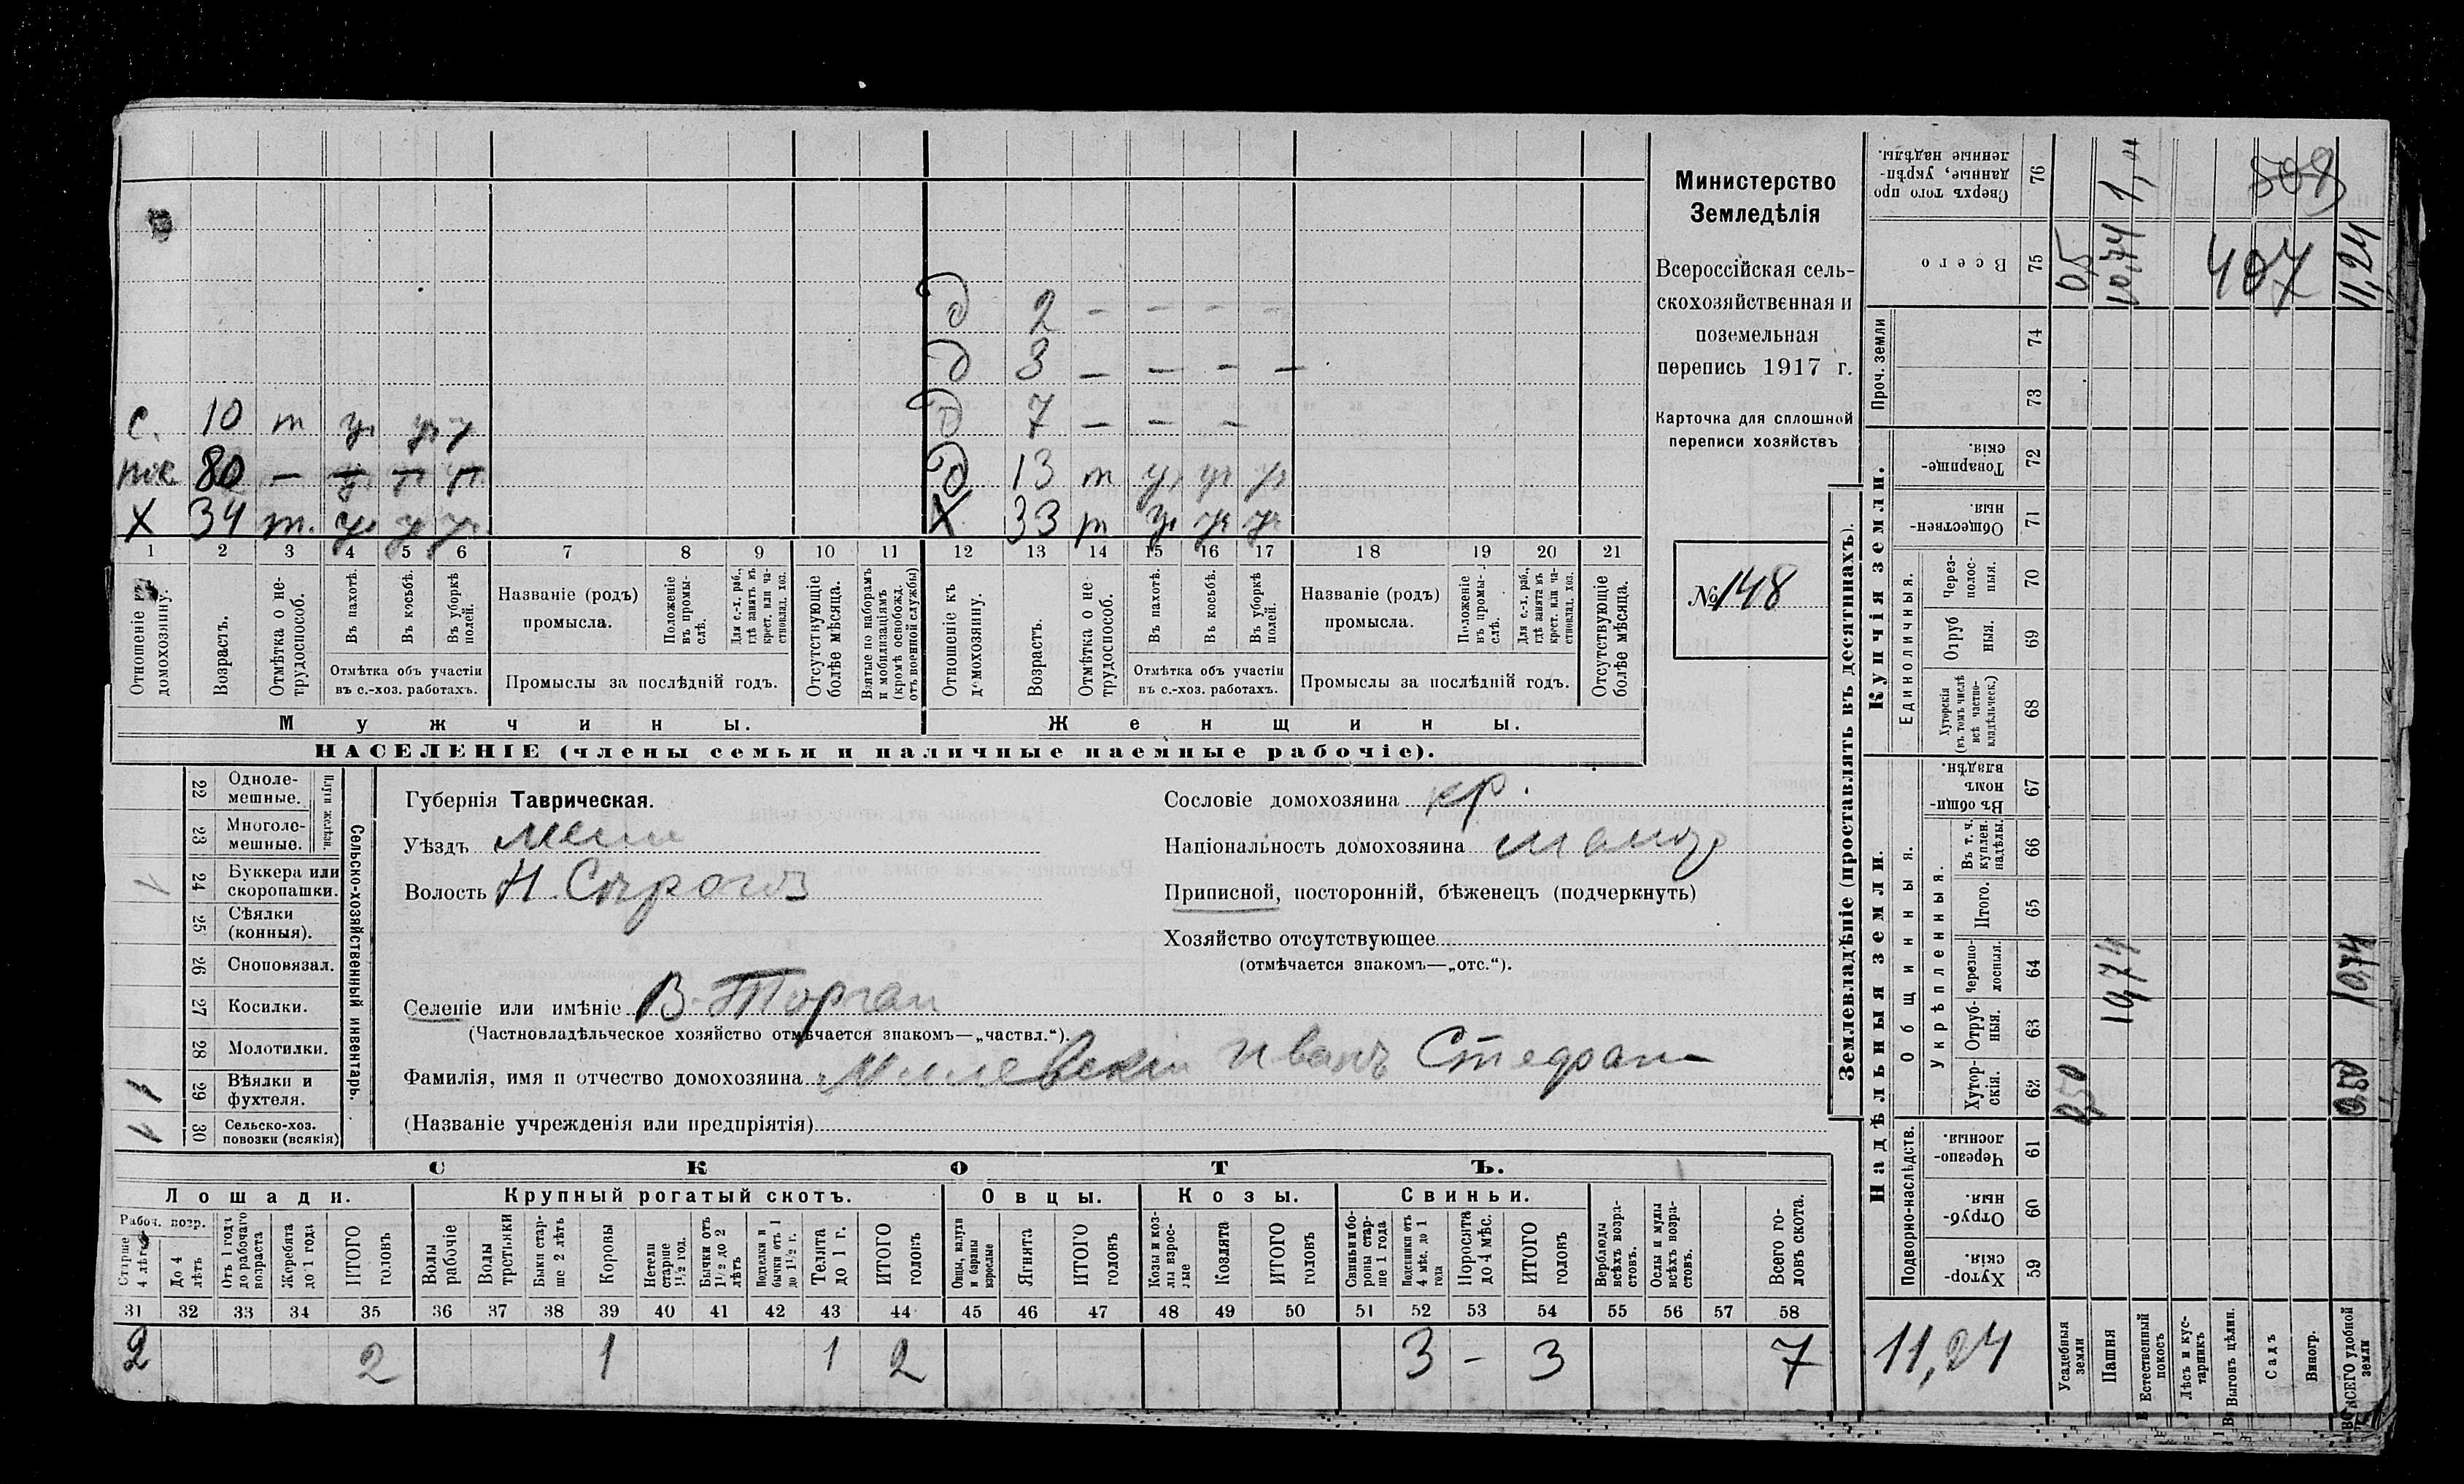 д 2 - - - -
д 3 - - - -
с. 10 т у у у д 7 - - -
80 - д 13 т у у у
Х 34 т. у у у Х 33 т у у у
1 2 3 4 5 6 7 8 9 10 11 12 13 14 15 16 17 18 19 20 21
Отношеніе къ домохозяину.
Возрастъ.
Отмѣтка о не-
трудоспособ.
Въ пахотѣ.
Въ косьбѣ.
Въ уборкѣ
полей.
Отмѣтка объ участіи
въ с.-хоз. работахъ.
Названіе (родъ)
промысла.
Положеніе
въ промы-
слѣ.
Для с.-х. раб.,
гдѣ занятъ въ
крест. или ча-
стновлад. хоз.
Промыслы за послѣдній годъ.
Отсутствующіе
болѣе мѣсяца.
Взятые по наборамъ
и мобилизаціямъ
(кромѣ освобожд.
отъ военной службы)
Отношеніе къ
домохозяину.
Возрастъ.
Отмѣтка о не-
трудоспособ.
Въ пахотѣ.
Въ косьбѣ.
Въ уборкѣ
полей.
Отмѣтка объ участіи
въ с.-хоз. работахъ.
Названіе (родъ)
промысла.
Положеніе
въ промы-
слѣ.
Для с.-х. раб.,
гдѣ занята въ
крест. или ча-
стновлад. хоз.
Промыслы за послѣдній годъ.
Отсутствующіе
болѣе мѣсяца.
Мужчины. Женщины.
НАСЕЛЕНІЕ (члены семьи и наличные наемные рабочіе).
Министерство
Земледѣлія
Всероссійская сель-
скохозяйственная и
поземельная
перепись 1917 г.
Карточка для сплошной
переписи хозяйствъ
№ 148
22 Одноле-
мешные.
23 Многоле-
мешные.
Плуги желѣзн.
24 Буккера или
скоропашки.
25 Сѣялки
(конныя).
26 Сноповязал.
27 Косилки.
28 Молотилки.
29 Вѣялки и
фухтеля.
30 Сельско-хоз.
повозки (всякія)
Сельско-хозяйственный инвентарь.
Губернія Таврическая.
Уѣздъ Мели
Волость Н. Сѣрогоз
Селеніе или имѣніе В-Торгаи
(Частновладѣльческое хозяйство отмѣчается знакомъ—„частвл.“).
Фамилія, имя и отчество домохозяина Милевскій Иванъ Стефан
(Названіе учрежденія или предпріятія)
Сословіе домохозяина кр.
Національность домохозяина малор
Приписной, посторонній, бѣженецъ (подчеркнуть)
Хозяйство отсутствующее
(отмѣчается знакомъ—„отс.“).
СКОТЪ.
Лошади. Крупный рогатый скотъ. Овцы. Козы. Свиньи.
Рабоч. возр.
Старше
4 лѣтъ
До 4
лѣтъ
Отъ 1 года
до рабочаго
возраста
Жеребята
до 1 года
ИТОГО
головъ
Волы
рабочіе
Волы
третьяки
Быки стар-
ше 2 лѣтъ
Коровы
Нетели
старше
1½ год.
Бычки отъ
1½ до 2
лѣтъ
Подтелки и
бычки отъ 1
до 1½ г.
Телята
до 1 г.
ИТОГО
головъ
Овцы, валухи
и бараны
взрослые
Ягнята
ИТОГО
головъ
Козы и коз-
лы взрос-
лые
Козлята
ИТОГО
головъ
Свиньи и бо-
ровы стар-
ше 1 года
Подсвинки отъ
4 мѣс. до 1
года
Поросята
до 4 мѣс.
ИТОГО
головъ
Верблюды
всѣхъ возра-
стовъ.
Ослы и мулы
всѣхъ возра-
стовъ.
Всего го-
ловъ скота.
31 32 33 34 35 36 37 38 39 40 41 42 43 44 45 46 47 48 49 50 51 52 53 54 55 56 57 58
2 2 1 1 2 3 - 3 7
Землевладѣніе (проставлять въ десятинахъ).
Надѣльныя земли.
Купчія земли.
Проч. земли
Подворно-наслѣдств.
Общинныя.
Укрѣпленныя.
Единоличныя.
Сверхъ того про
данные, укрѣп-
ленные надѣлы.
76
Всего
75
74
73
Товарище-
скія.
72
Обществен-
ныя.
71
Через-
полос-
ныя.
70
Отруб
ныя.
69
Хуторскія
(въ томъ числѣ
всѣ частно-
владѣльческ.)
68
Въ общи-
номъ
владѣн.
67
Въ т. ч.
куплен.
надѣлы.
66
Итого.
65
Черезпо-
лосныя.
64
Отруб-
ныя.
63
Хутор-
скія.
62
Черезпо-
лосныя.
61
Отруб-
ныя.
60
Хутор-
скія.
59
11,24
Усадебныя
земли
Пашня
Естественный
покосъ
Лѣсъ и кус-
тарникъ
Выгонъ цѣлин.
Садъ
Виногр.
ВСЕГО удобной
земли
0,5
10,74
407
11,24
509
10,74
10,74
0,50
0,50